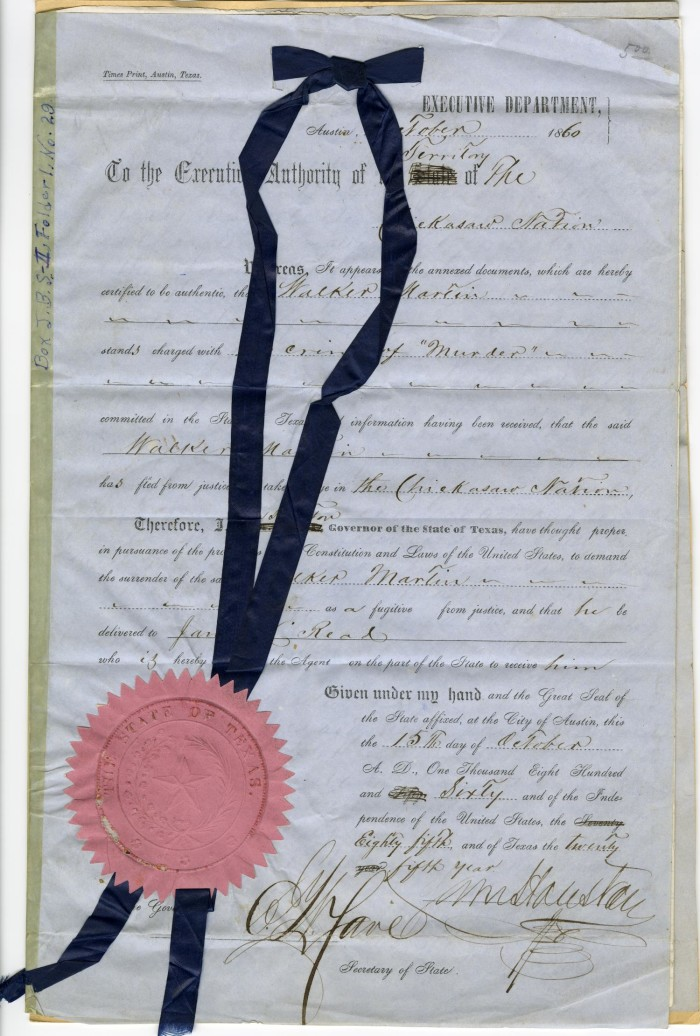 500
Times Print, Austin, Texas.
EXECUTIVE DEPARTMENT,
Austin, October 1860
Territory
To the Executive Authority of of The
Chickasaw Nation
Whereas, It appears the annexed documents, which are hereby
certified to be authentic, tha Walker Martin
stands charged with crime of "Murder"
committed in the Sta Texas d information having been received, that the said
Walker Martin
has fled from justice take ge in the Chickasaw Nation,
Therefore, I Governor of the State of Texas, have thought proper,
in pursuance of the pro Constitution and Laws of the United States, to demand
the surrender of the sa lker Martin
as a fugitive from justice, and that he be
delivered to Ja C. Read
who is hereby the Agent on the part of the State to receive him
Given under my hand and the Great Seal of
the State affixed, at the City of Austin, this
the 15th day of October
A. D., One Thousand Eight Hundred
and Sixty and of the Inde-
pendence of the United States, the Seventy
Eighty fifth, and of Texas the twenty
year fifth year
Sam Houston
the Gov
E. W. Cave
Secretary of State.
THE STATE OF TEXAS.
Box J.B. S-II, Folder 1, No. 20